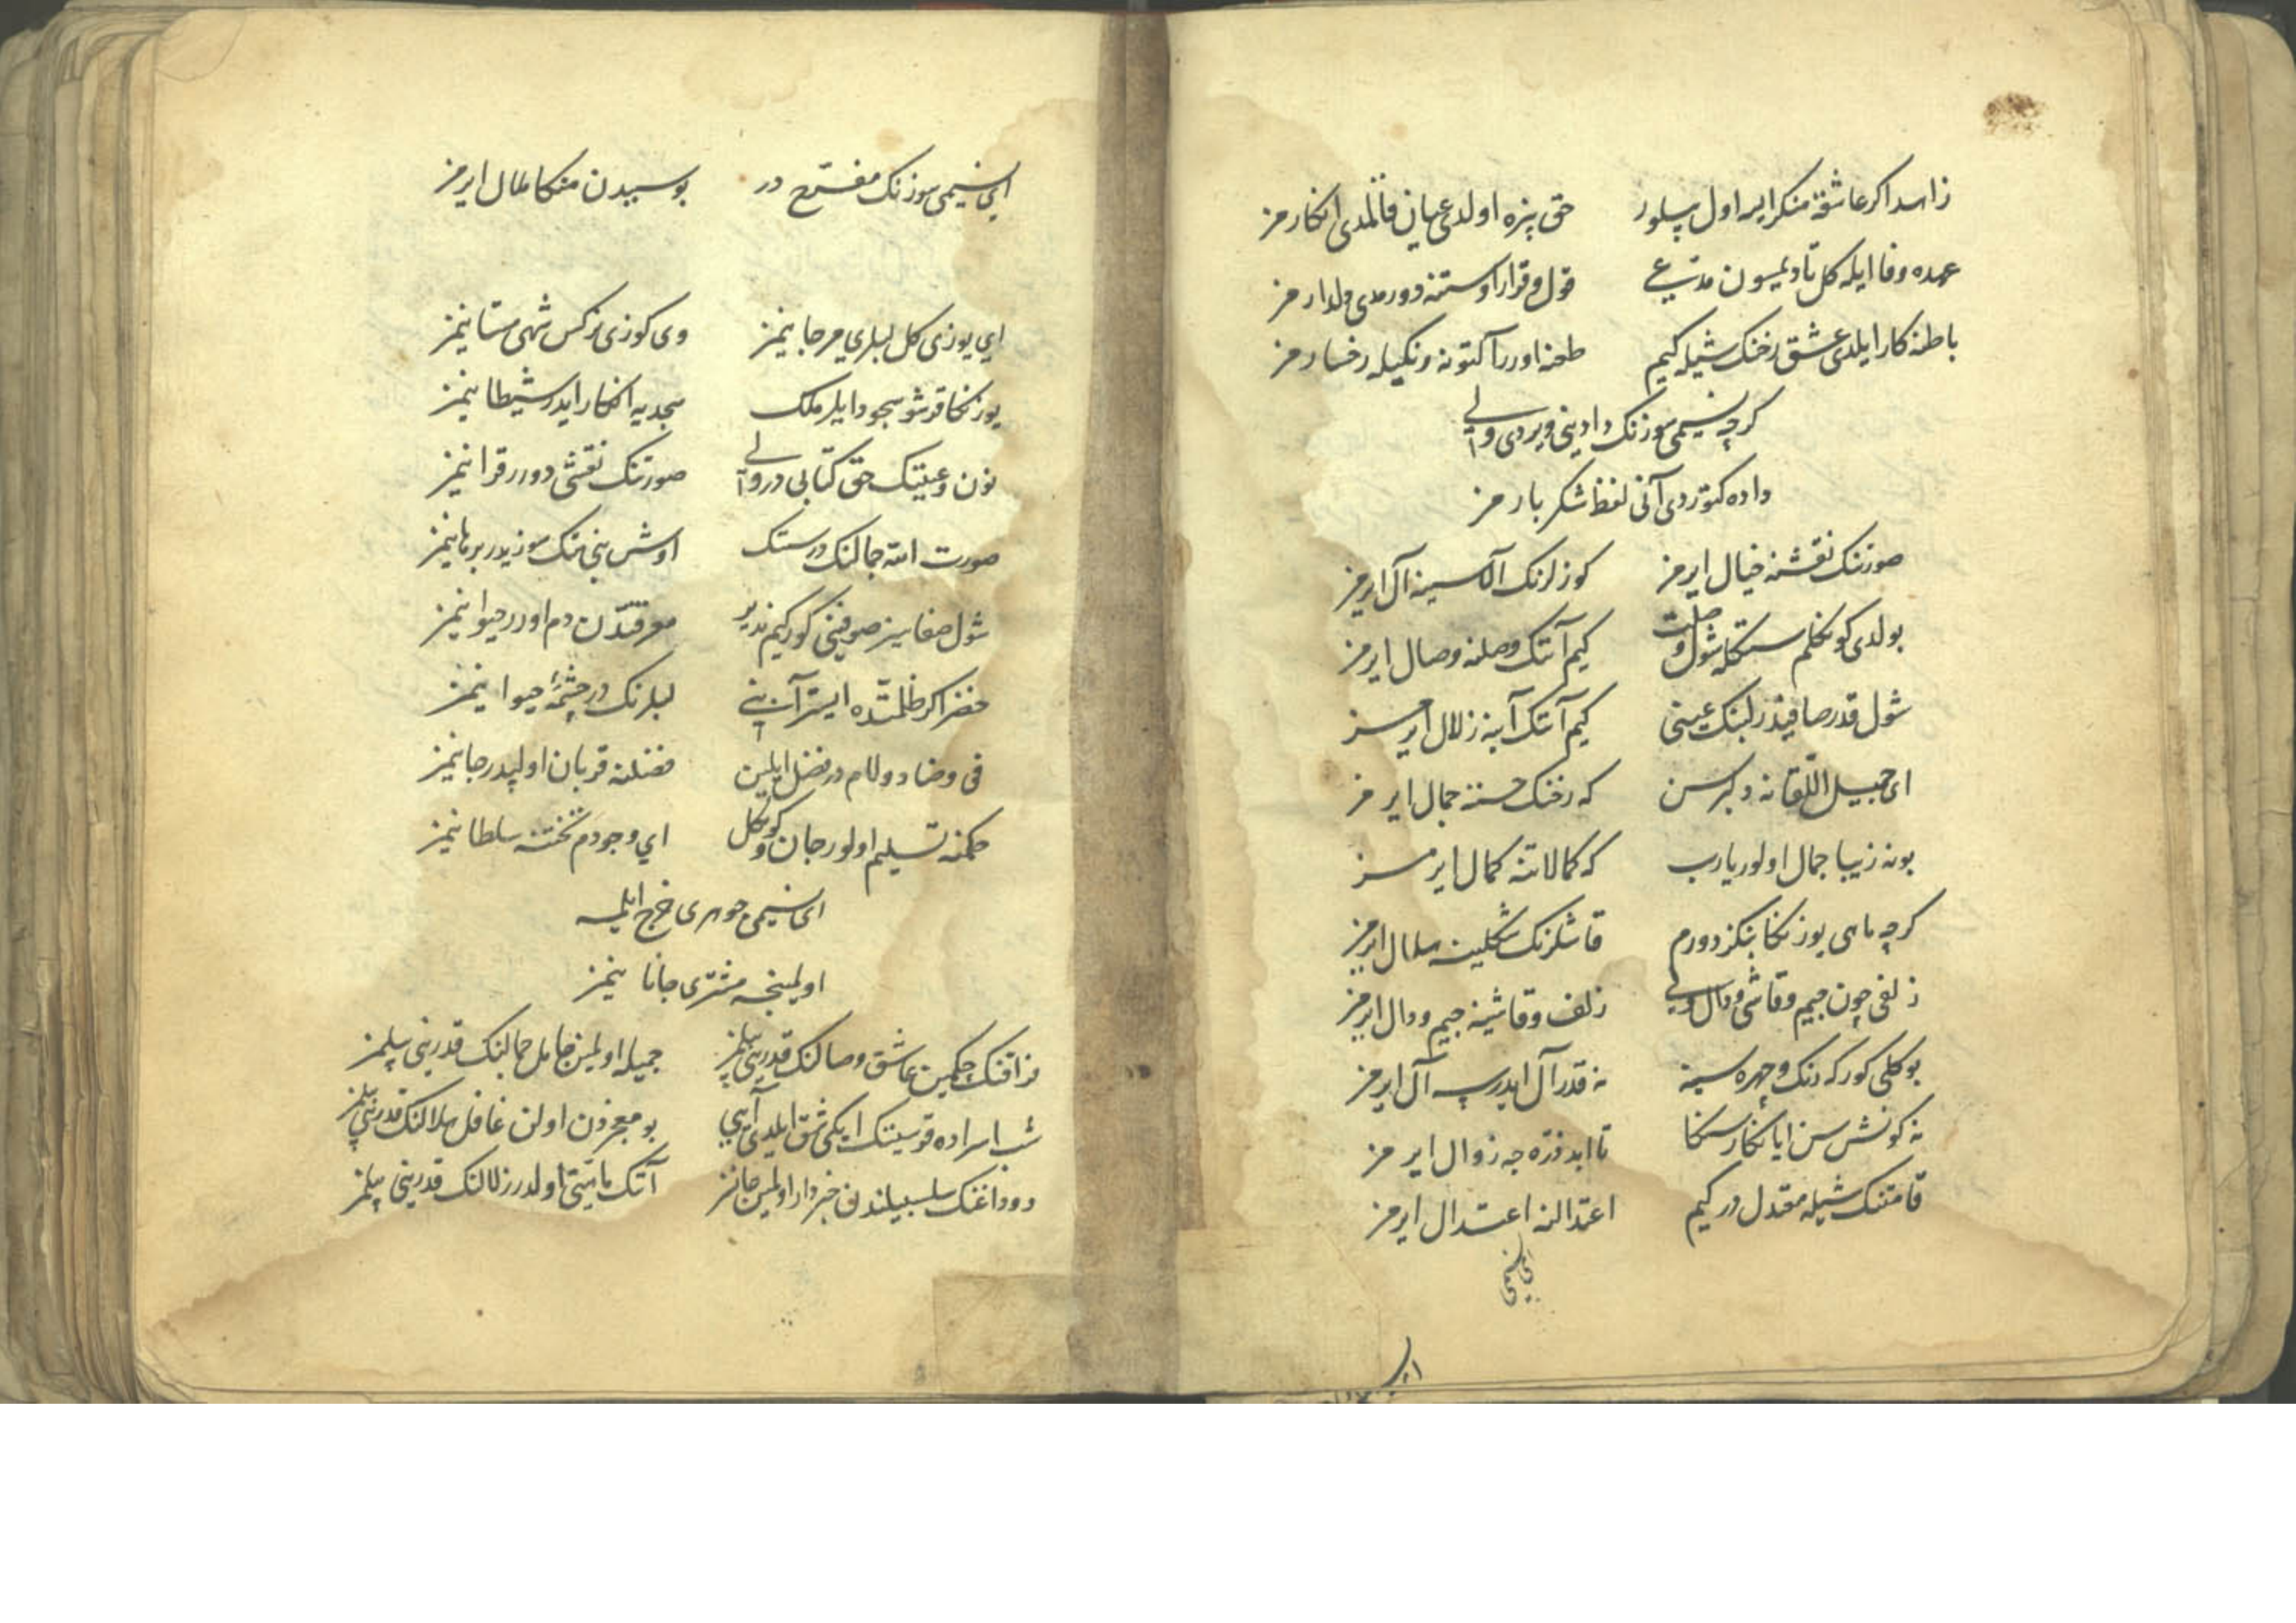 زاهد اکر عاشقه منکر ایسه اول بیلور حق بزه اولدی عیان قالمدی انکارمز
عهده وفا ایله کل تا دیمسون مدعی قول و قرار اوستنه دورمدی دلدارمز
باطنه کار ایلدی عشق رخنک شیله کیم طعنه اورر آلتونه رنکیله رخسارمز
کرچه نسیمی سوزنک دادینی ویردی ولی
داده کتوردی آنی لفظ شکربارمز
صورتنک نقشنه خیال ایرمز کوزلرنک آلاسینه آل ایرمز
بولدی کوکلم سنکله شول وصلت کیم آنک وصلنه وصال ایرمز
شول قدر صافیدر لبنک عینی کیم آنک آبنه زلال ایرمز
ای جمیل اللقا نه دلبرسن که رخنک حسننه جمال ایرمز
بو نه زیبا جمال اولور یا رب که کمالاتنه کمال ایرمز
کرچه ماهی یوزنکا بنکزدورم قاشلرنک شکلینه هلال ایرمز
زلفی چون جیم و قاشی دال ولی زلف و قاشینه جیم و دال ایرمز
بو کلی کور که رنک و چهره سینه نه قدر آل ایدرسه آل ایرمز
نه کونش سن ایا نکار سنکا تا ابد ذره جه زوال ایرمز
قامتنک شیله معتدل در کیم اعتدالنه اعتدال ایرمز
ای نسیمی سوزنک مفرح در بو سبیدن منکا ملال ایرمز
ای یوزی کل لبلری مرجانیمز وی کوزی نرکس شهی مستانیمز
یوزنکا قرشو سجود ایلر ملک سجدیه انکار ایدر شیطانیمز
نون و عینک حق کتابی در ولی صورتنک نقشی دورر قرانیمز
صورت الله جمالنک در سنک اوش بنی سنک سوزیدر برهانیمز
شول صفاسز صوفینی کور کیم ندیر معرفتدن دم اورر حیوانیمز
خضر اکر ظلمتده ایستر آبنی لبلرنک در چشمهٔ حیوانیمز
فی و ضاد و لام در فضل ایلین فضلنه قربان اولیدر جانیمز
حکمنه تسلیم اولور جان و کوکل ای وجودم تختنه سلطانیمز
ای نسیمی جوهری خرج ایلمه
اولمینجه مشتری جانانیمز
فراقنک چکمین عاشق وصالنک قدرینی بیلمز جمیله اولمین حامل جمالنک قدرینی بیلمز
شب اسراده قوسینک ایکی شق ایلدی آیی بو معجزدن اولن غافل هلالنک قدرینی بیلمز
دوداغنک سلسبیلندن خبردار اولمین جانلر آنک مایتی اولدر زلالنک قدرینی بیلمز